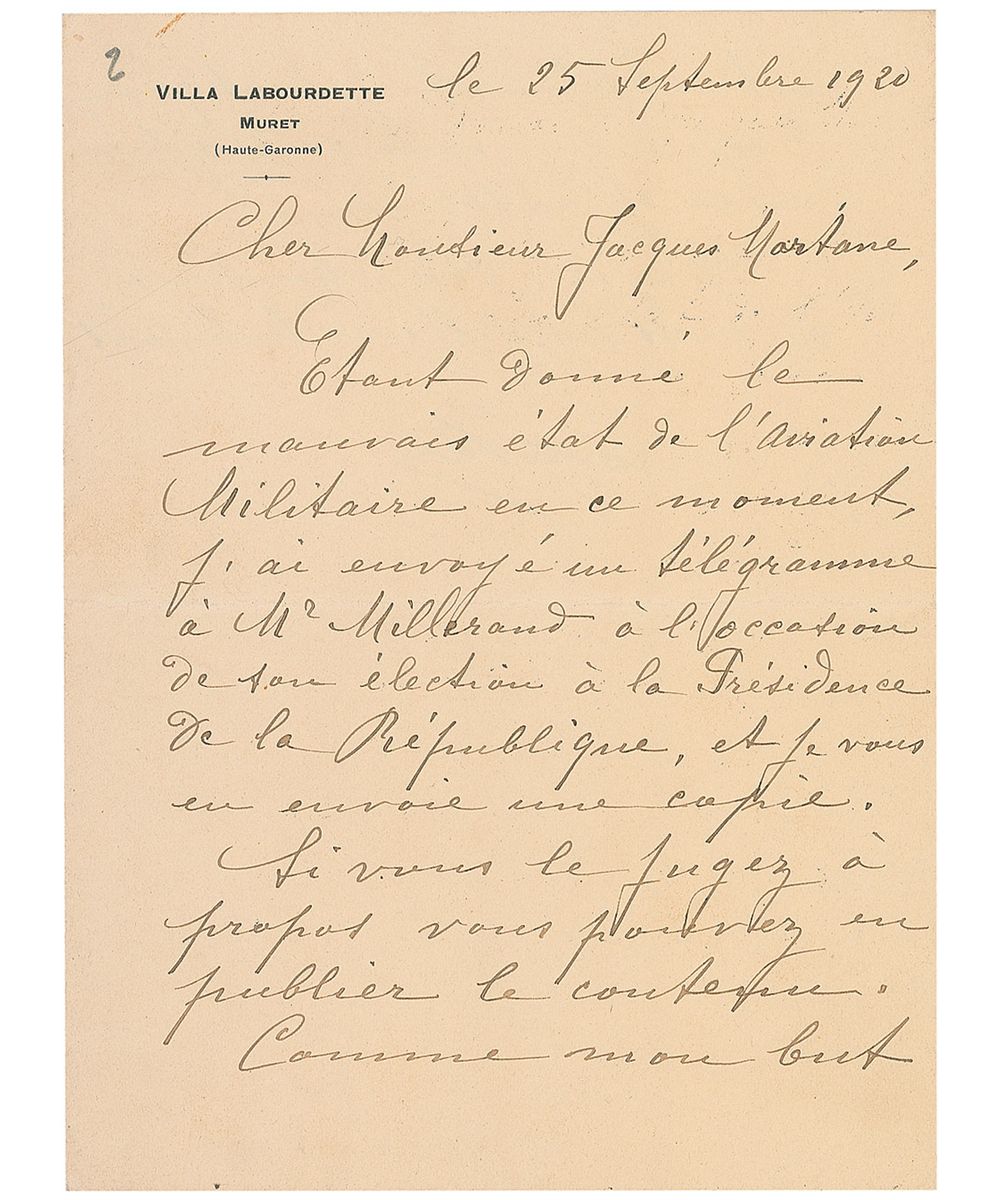 2
VILLA LABOURDETTE
MURET
(Haute-Garonne)
le 25 Septembre 1920
Cher Monsieur Jacques Mortane,
Etant donné le
mauvais état de l'Aviation
Militaire en ce moment,
j'ai envoyé un télégramme
à Mr Millerand à l'occasion
de son élection à la Présidence
de la République, et je vous
en envoie une copie.
Si vous le jugez à
propos vous pouvez en
publier le contenu.
Comme mon but